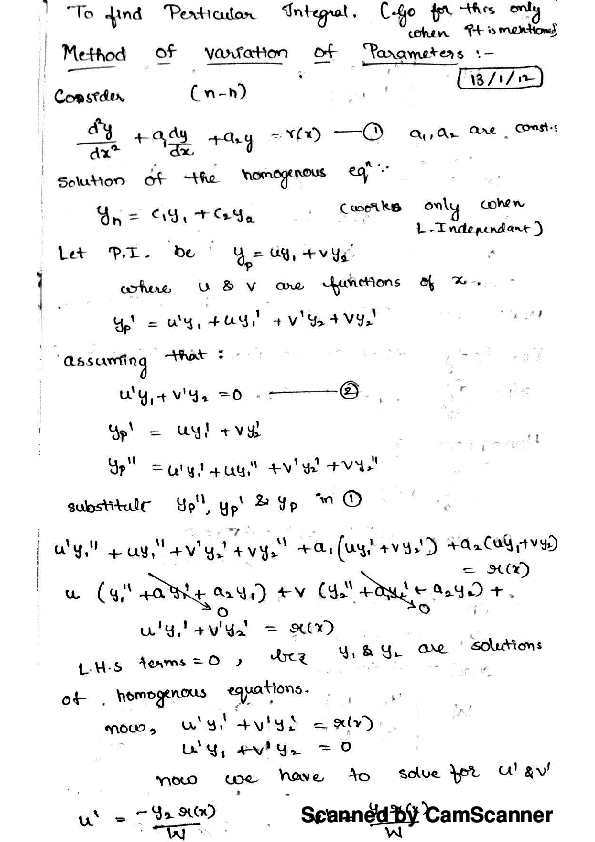 To find Perticular Integral. (Go for this only
when it is mentioned)
Method of variation of Parameters :-
13/1/12
Consider (n-h)
d²y/dx² + a₁dy/dx + a₂y = r(x) — ① a₁, a₂ are const.s
Solution of the homogenous eqⁿ :
yₕ = c₁y₁ + c₂y₂ (works only when
L. Independant)
Let P.I. be y_p = uy₁ + vy₂
where u & v are functions of x.
y_p' = u'y₁ + uy₁' + v'y₂ + vy₂'
assuming that :
u'y₁ + v'y₂ = 0 — ②
y_p' = uy₁' + vy₂'
y_p'' = u'y₁' + uy₁'' + v'y₂' + vy₂''
substitute y_p'', y_p' & y_p in ①
u'y₁'' + uy₁'' + v'y₂' + vy₂'' + a₁(uy₁' + vy₂') + a₂(uy₁+vy₂)
= r(x)
u (y₁'' + a₁y₁' + a₂y₁) + v (y₂'' + a₁y₂' + a₂y₂) +
0 0
u'y₁' + v'y₂' = r(x)
L.H.S terms = 0, bcz y₁ & y₂ are solutions
of homogenous equations.
now, u'y₁' + v'y₂' = r(x)
u'y₁ + v'y₂ = 0
now we have to solve for u' & v'
u' = -y₂ r(x)/W
Scanned by CamScanner